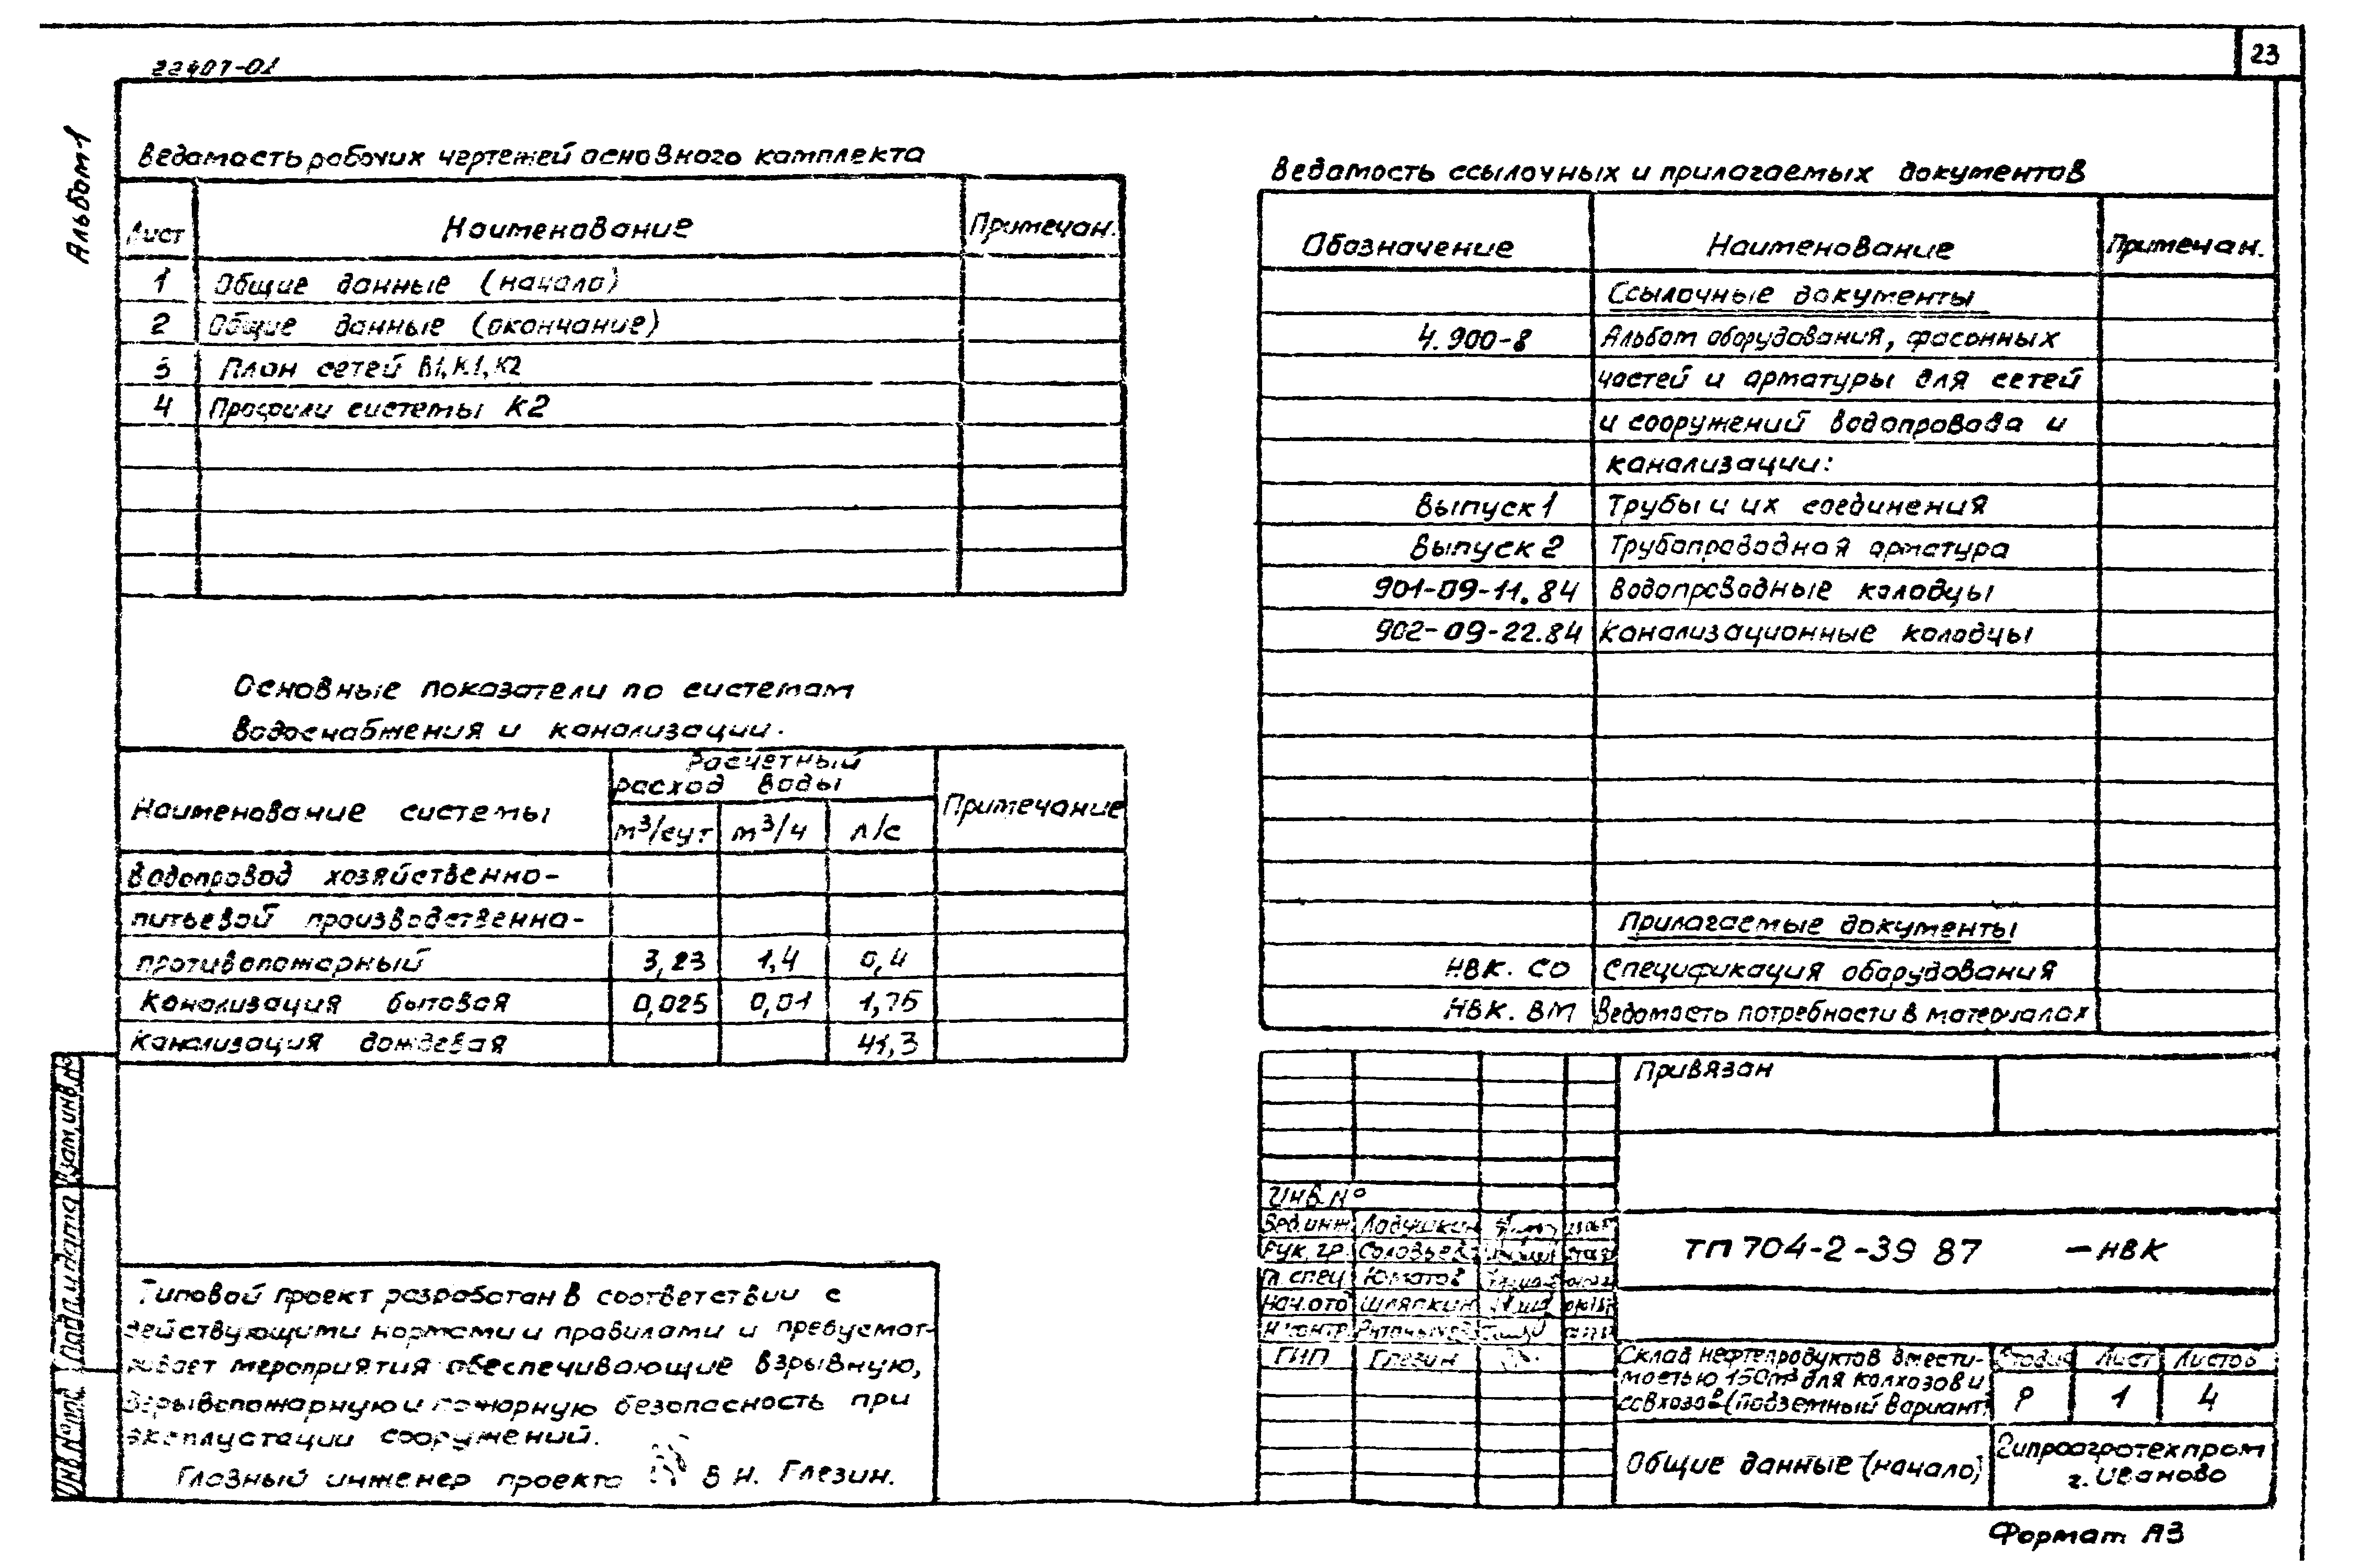 22407-01
23
Альбом 1
Ведомость рабочих чертежей основного комплекта
Лист Наименование Примечан.
1 Общие данные (начало)
2 Общие данные (окончание)
3 План сетей В1, К1, К2
4 Профили системы К2
Основные показатели по системам
водоснабжения и канализации.
Наименование системы Расчетный расход воды Примечание
м³/сут м³/ч л/с
Водопровод хозяйственно-
питьевой производственно-
противопожарный 3,23 1,4 0,4
Канализация бытовая 0,025 0,01 1,75
Канализация дождевая 41,3
Типовой проект разработан в соответствии с
действующими нормами и правилами и предусмат-
ривает мероприятия обеспечивающие взрывную,
взрывопожарную и пожарную безопасность при
эксплуатации сооружений.
Главный инженер проекта В Н. Глезин.
Взам.инв.№
Подп.и дата
Инв.№ подл.
Ведомость ссылочных и прилагаемых документов
Обозначение Наименование Примечан.
Ссылочные документы
4.900-8 Альбом оборудования, фасонных
частей и арматуры для сетей
и сооружений водопровода и
канализации:
Выпуск 1 Трубы и их соединения
Выпуск 2 Трубопроводная арматура
901-09-11.84 Водопроводные колодцы
902-09-22.84 Канализационные колодцы
Прилагаемые документы
НВК. СО Спецификация оборудования
НВК. ВМ Ведомость потребности в материалах
Привязан
Инв.№
Вед.инж. Ладушкин
Рук. гр. Соловьев
Гл. спец Юматов
Нач.отд Шляпкин
Н.контр
ГИП Глезин
ТП 704-2-39 87 -НВК
Склад нефтепродуктов вмести-
мостью 150м³ для колхозов и
совхозов (подземный вариант)
Стадия Лист Листов
Р 1 4
Общие данные (начало)
Гипроагротехпром
г. Иваново
Формат А3